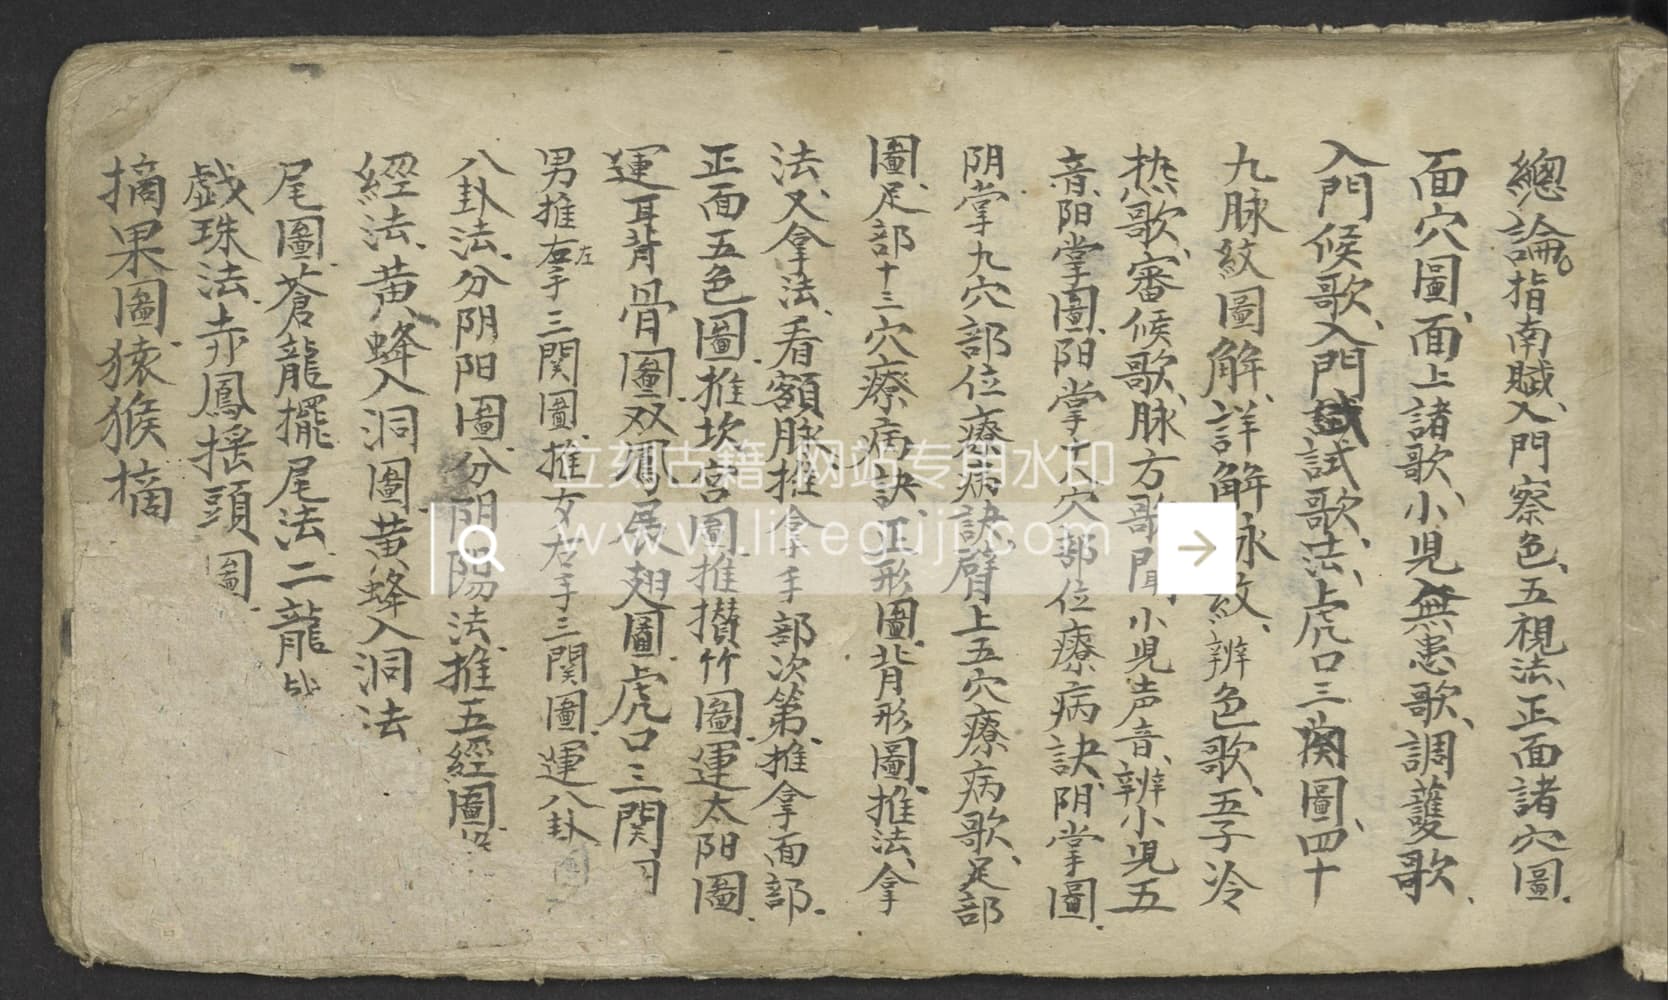 總論指南賦、入門察色、五視法、正面諸穴圖.
面穴圖、面上諸歌、小児無患歌、調護歌、
入門候歌、入門試歌法、虎口三関圖、四十
九脉紋圖解、詳解脉紋、辨色歌、五子冷
热歌、審候歌、脉方歌、聞小児声音、辨小児五
音、阳掌圖、阳掌十八穴部位療病訣、阴掌圖.
阴掌九穴部位療病訣、臂上五穴療病歌、足部
圖、足部十三穴療病訣、正形圖、背形圖、推法、拿
法、又拿法、看額脉、推拿手部次第、推拿面部.
正面五色圖、推坎宫圖、推攅竹圖、運太阳圖.
運耳背骨圖、双鳳展翅圖、虎口三関
男推右左手三関圖、推女右手三関圖、運八卦圖
八卦法、分阴阳圖、分阴陽法、推五經圖、
經法、黄蜂入洞圖、黄蜂入洞法
尾圖、蒼龍擺尾法、二龍戯
戯珠法、赤鳳揺頭圖、
摘果圖、猿猴摘
位刻古籍-网站专用水印
www.likeguji.com